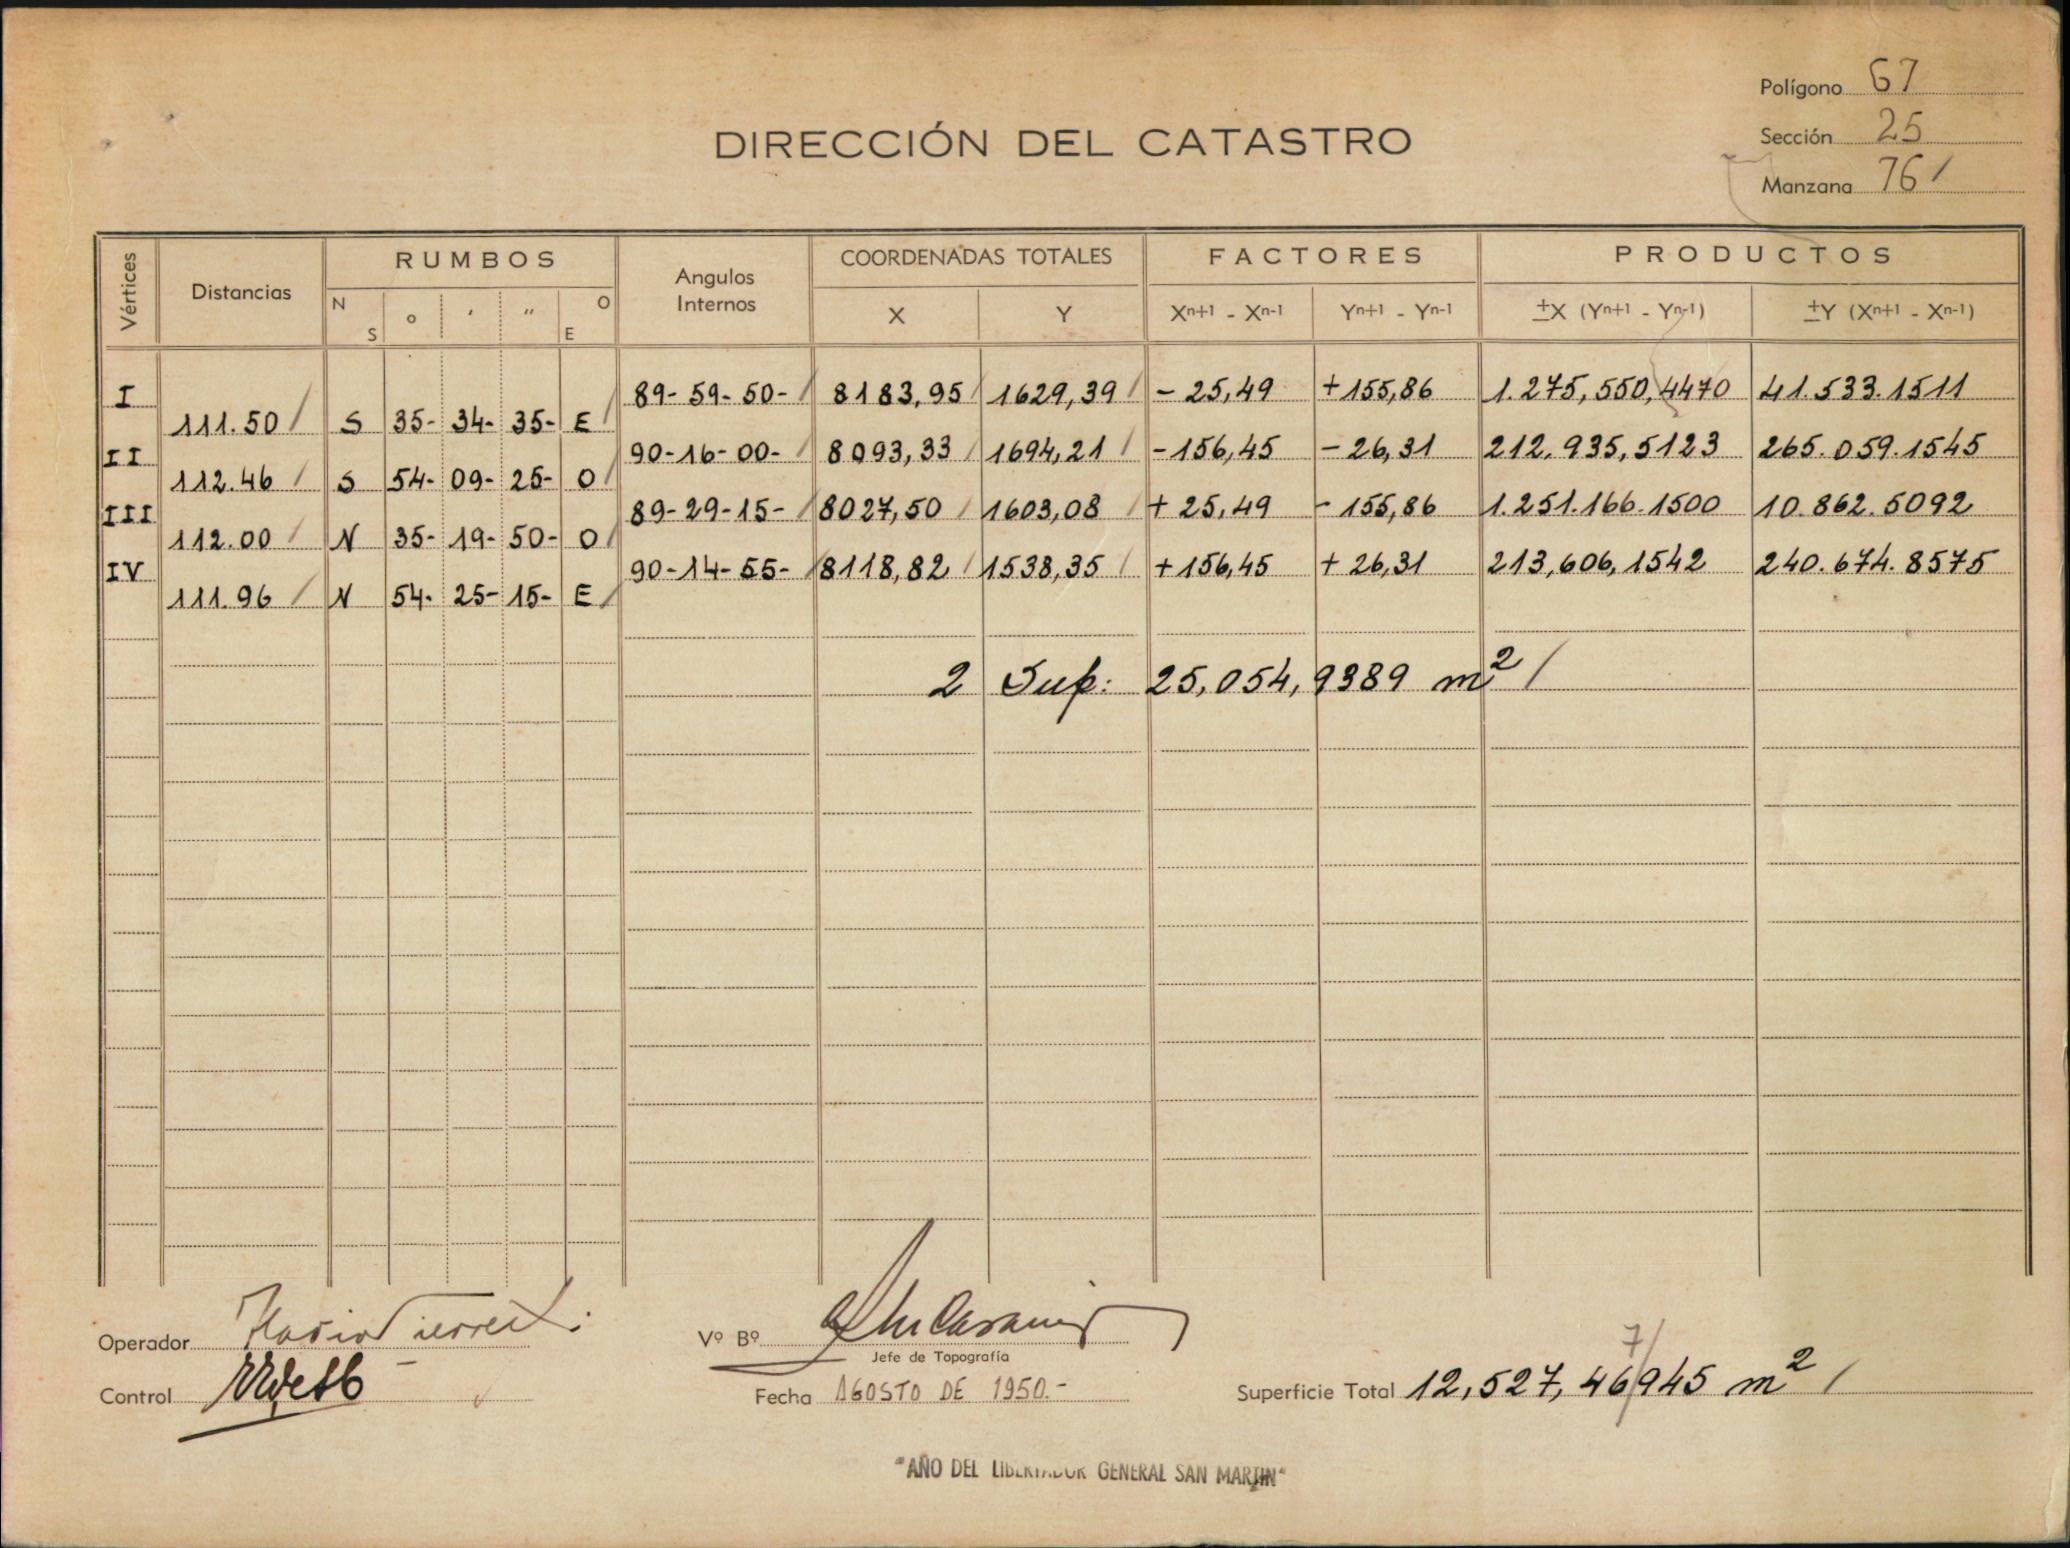 Polígono 67
Sección 25
Manzana 76
DIRECCIÓN DEL CATASTRO
Vértices Distancias RUMBOS Angulos Internos COORDENADAS TOTALES FACTORES PRODUCTOS
N S ° ' " O E X Y Xn+1 - Xn-1 Yn+1 - Yn-1 ±X (Yn+1 - Yn-1) ±Y (Xn+1 - Xn-1)
I 89-59-50- 8183,95 1629,39 -25,49 +155,86 1.275,550,4470 41.533.1511
111.50 S 35- 34- 35- E
II 90-16-00- 8093,33 1694,21 -156,45 -26,31 212.935,5123 265.059.1545
112.46 S 54- 09- 25- O
III 89-29-15- 8027,50 1603,08 +25,49 -155,86 1.251.166.1500 10.862.5092
112.00 N 35- 19- 50- O
IV 90-14-55- 8118,82 1538,35 +156,45 +26,31 213,606,1542 240.674.8575
111.96 N 54- 25- 15- E
2 Sup: 25,054,9389 m²
Operador
Control
Vº Bº
Jefe de Topografía
Fecha AGOSTO DE 1950.-
7
Superficie Total 12,527,46945 m²
"AÑO DEL LIBERTADOR GENERAL SAN MARTIN"